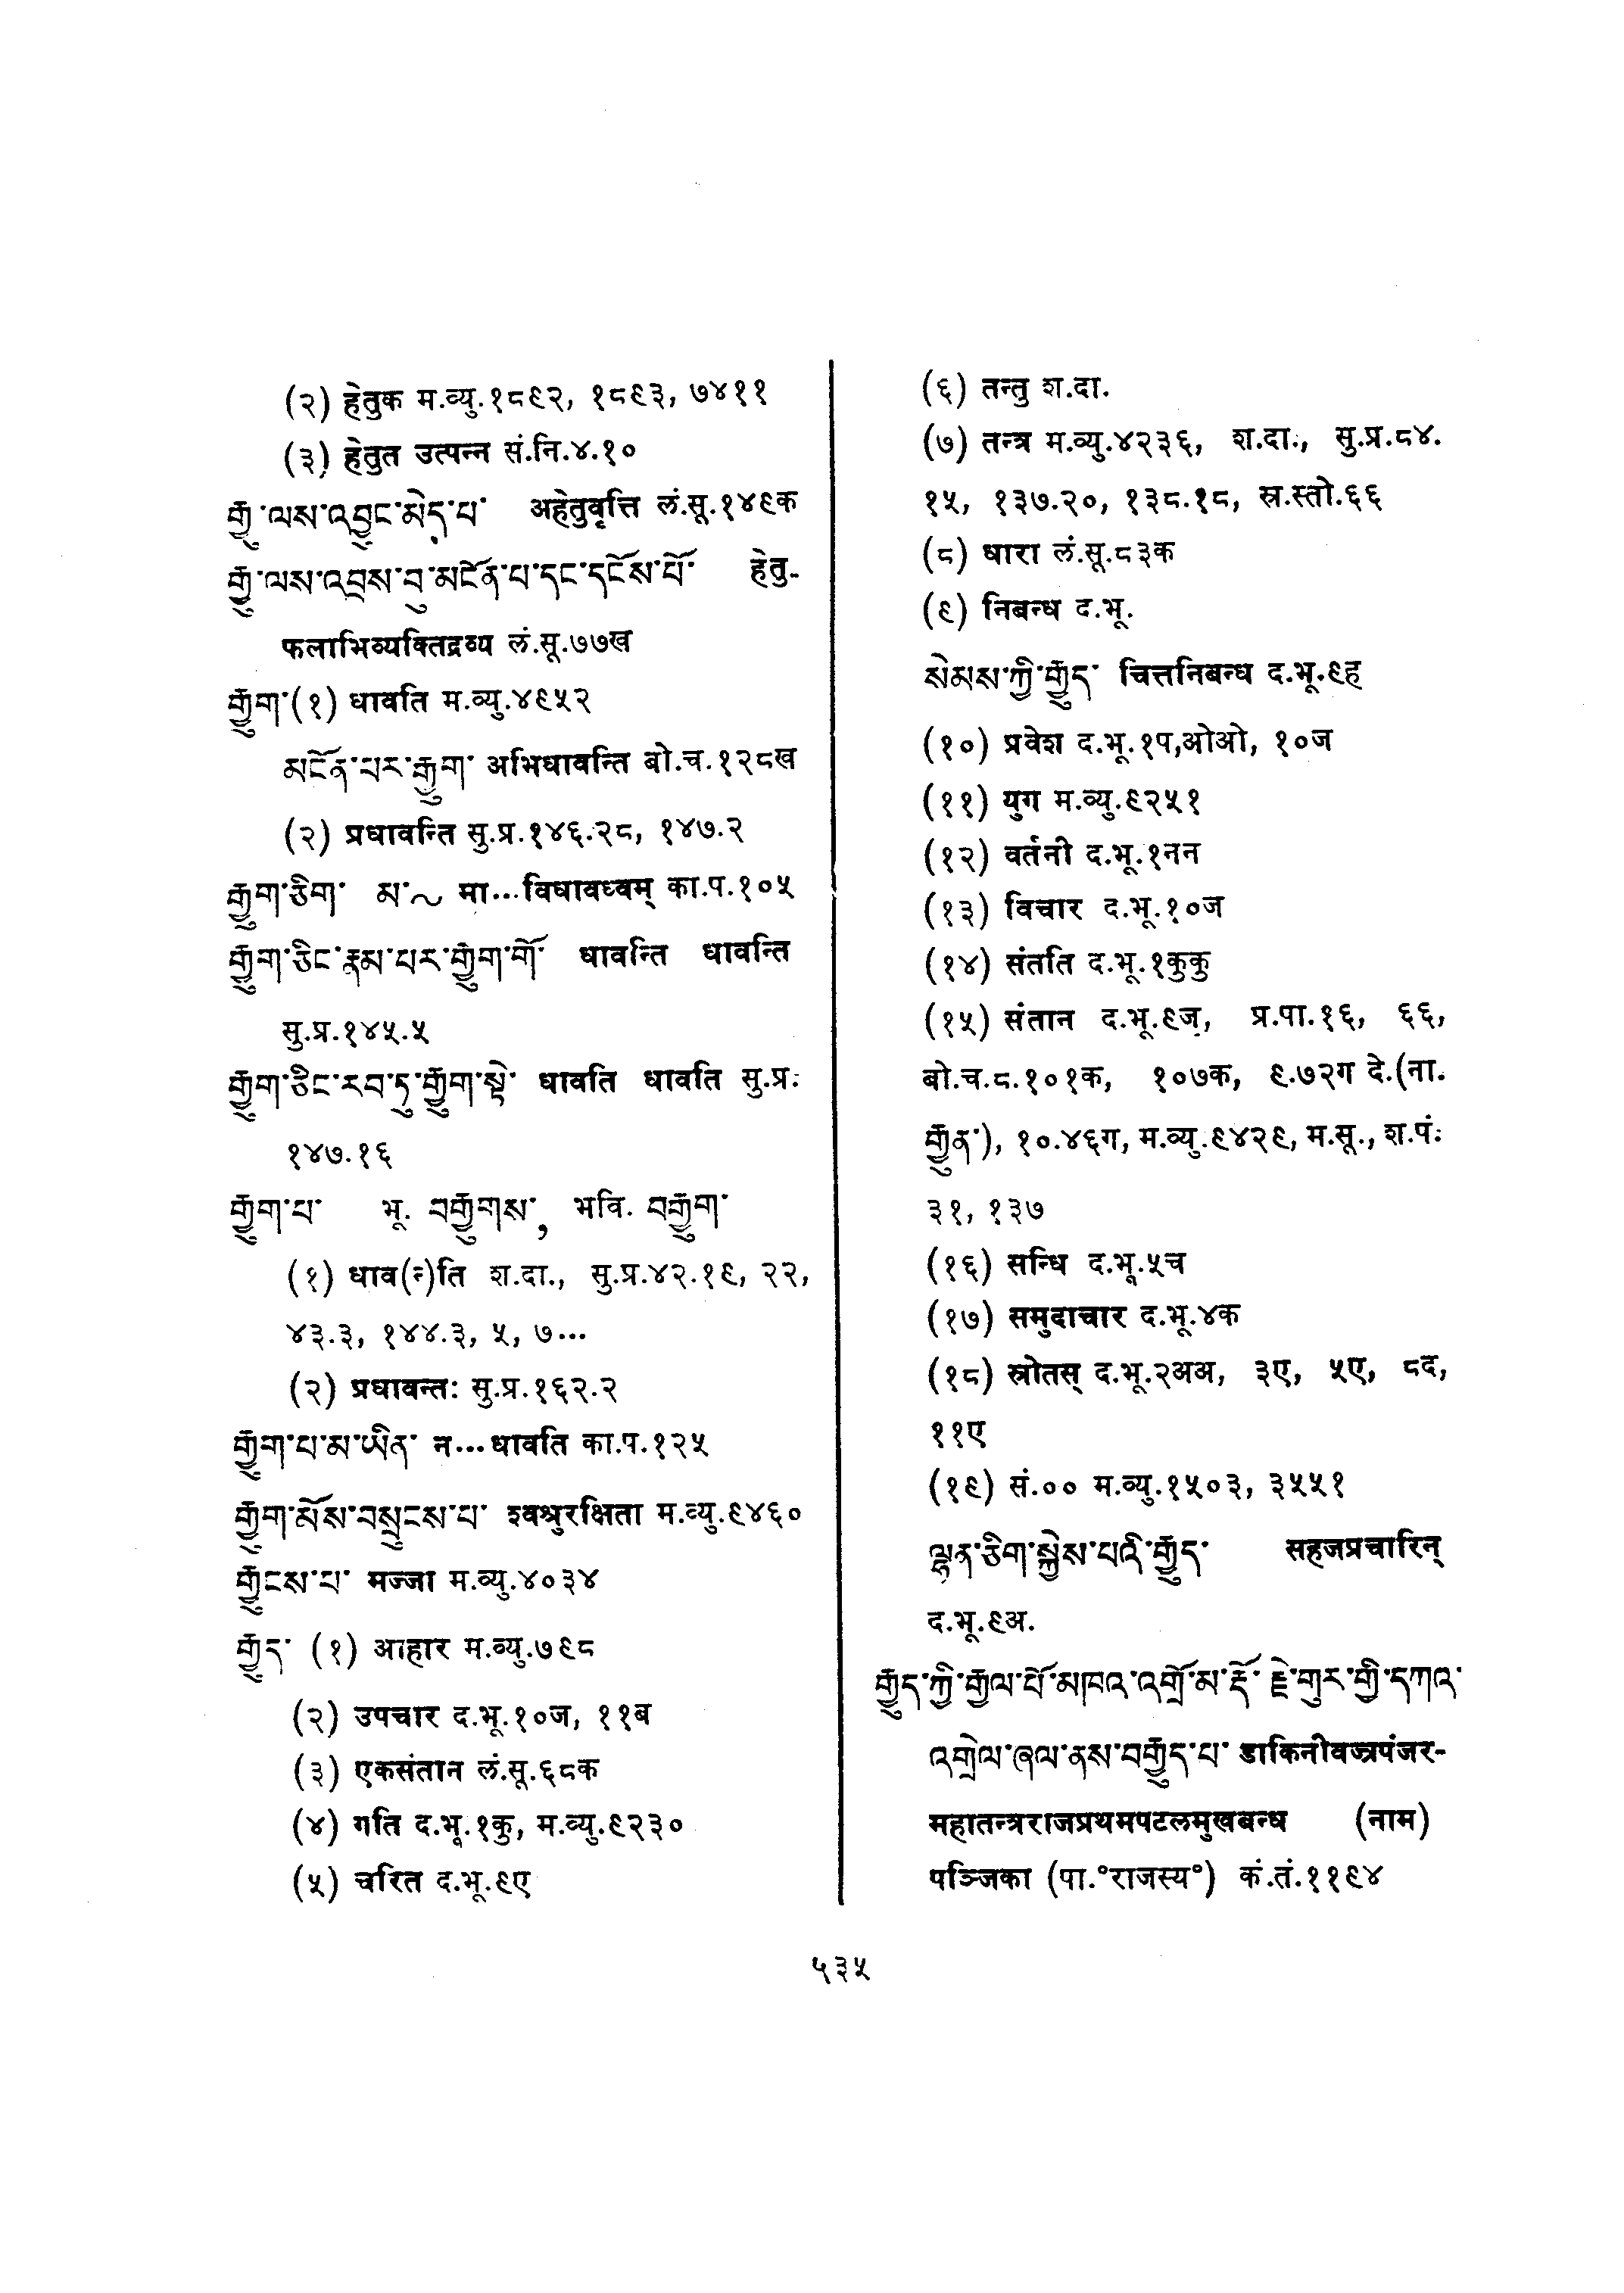 (२) हेतुक म.व्यु.१८९२, १८९३, ७४११
(३) हेतुत उत्पन्न सं.नि.४.१०
རྒྱུ་ལས་འབྱུང་མེད་པ་ अहेतुवृत्ति लं.सू.१४९क
རྒྱུ་ལས་འབྲས་བུ་མངོན་པ་དང་དངོས་པོ་ हेतु-
फलाभिव्यक्तिद्रव्य लं.सू.७७ख
རྒྱུག་(१) धावति म.व्यु.४९५२
མངོན་པར་རྒྱུག་ अभिधावन्ति बो.च.१२८ख
(२) प्रधावन्ति सु.प्र.१४६.२८, १४७.२
རྒྱུག་ཅིག་ མ་~ मा...विधावध्वम् का.प.१०५
རྒྱུག་ཅིང་རྣམ་པར་རྒྱུག་གོ་ धावन्ति धावन्ति
सु.प्र.१४५.५
རྒྱུག་ཅིང་རབ་ཏུ་རྒྱུག་སྟེ་ धावति धावति सु.प्र.
१४७.१६
རྒྱུག་པ་ भू. བརྒྱུགས་, भवि. བརྒྱུག་
(१) धाव(न्)ति श.दा., सु.प्र.४२.१९, २२,
४३.३, १४४.३, ५, ७...
(२) प्रधावन्तः सु.प्र.१६२.२
རྒྱུག་པ་མ་ཡིན་ न...धावति का.प.१२५
རྒྱུག་མོས་བསྲུངས་པ་ श्वश्रुरक्षिता म.व्यु.९४६०
རྒྱུངས་པ་ मज्जा म.व्यु.४०३४
རྒྱུད་ (१) आहार म.व्यु.७९८
(२) उपचार द.भू.१०ज, ११ब
(३) एकसंतान लं.सू.६८क
(४) गति द.भू.१कु, म.व्यु.९२३०
(५) चरित द.भू.९ए
(६) तन्तु श.दा.
(७) तन्त्र म.व्यु.४२३६, श.दा., सु.प्र.८४.
१५, १३७.२०, १३८.१८, स्र.स्तो.६६
(८) धारा लं.सू.८३क
(९) निबन्ध द.भू.
སེམས་ཀྱི་རྒྱུད་ चित्तनिबन्ध द.भू.९ह
(१०) प्रवेश द.भू.१प,ओओ, १०ज
(११) युग म.व्यु.९२५१
(१२) वर्तनी द.भू.१नन
(१३) विचार द.भू.१०ज
(१४) संतति द.भू.१कुकु
(१५) संतान द.भू.९ज, प्र.पा.१६, ६६,
बो.च.८.१०१क, १०७क, ९.७२ग दे.(ना.
རྒྱུན་), १०.४६ग, म.व्यु.९४२९, म.सू., श.पं.
३१, १३७
(१६) सन्धि द.भू.५च
(१७) समुदाचार द.भू.४क
(१८) स्रोतस् द.भू.२अअ, ३ए, ५ए, ८द,
११ए
(१९) सं.०० म.व्यु.१५०३, ३५५१
ལྷན་ཅིག་སྐྱེས་པའི་རྒྱུད་ सहजप्रचारिन्
द.भू.९अ.
རྒྱུད་ཀྱི་རྒྱལ་པོ་མཁའ་འགྲོ་མ་རྡོ་རྗེ་གུར་གྱི་དཀའ་
འགྲེལ་ཞལ་ནས་བརྒྱུད་པ་ डाकिनीवज्रपंजर-
महातन्त्रराजप्रथमपटलमुखबन्ध (नाम)
पञ्जिका (पा.°राजस्य°) कं.तं.११९४
५३५